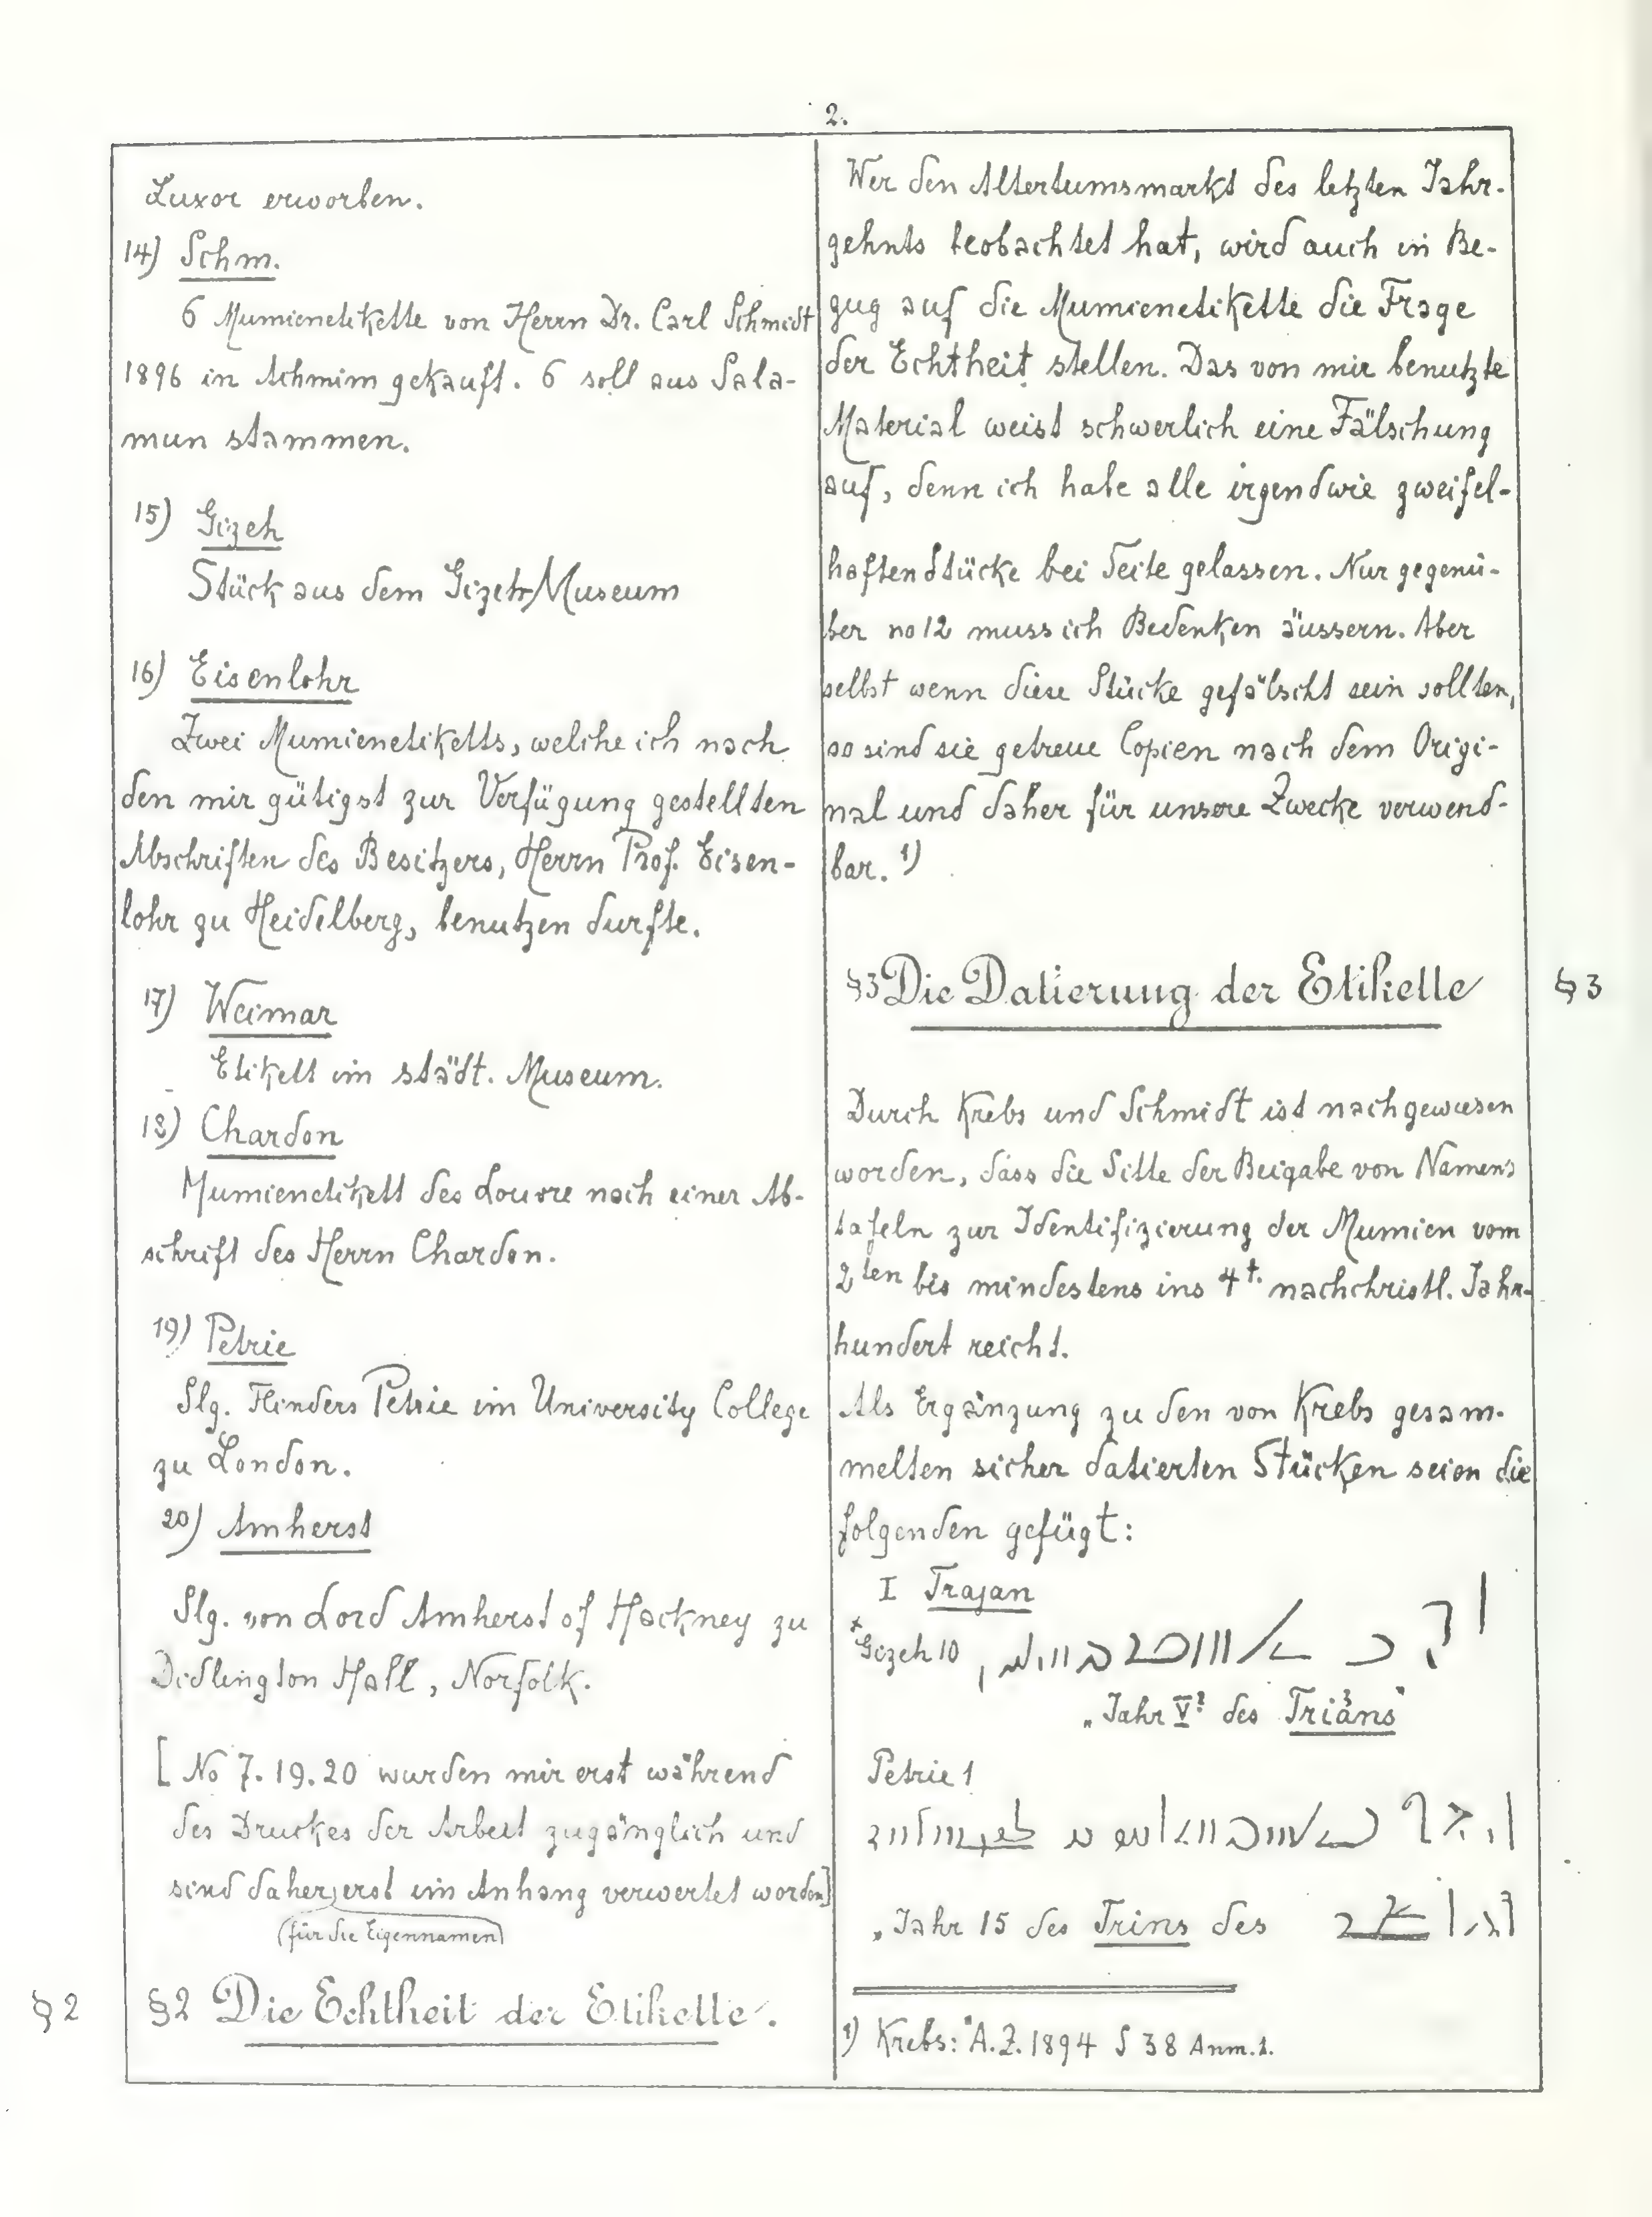 2.
Luxor erworben.
14) Schm.
6 Mumienetikette von Herrn Dr. Carl Schmidt
1896 in Achmim gekauft. 6 soll aus Sala-
mun stammen.
15) Gizeh
Stück aus dem Gizeh-Museum
16) Eisenlohr
Zwei Mumienetiketts, welche ich nach
den mir gütigst zur Verfügung gestellten
Abschriften des Besitzers, Herrn Prof. Eisen-
lohr zu Heidelberg, benutzen durfte.
17) Weimar
Etikett im städt. Museum.
18) Chardon
Mumienetikett des Louvre nach einer Ab-
schrift des Herrn Chardon.
19) Petrie
Slg. Flinders Petrie im University College
zu London.
20) Amherst
Slg. von Lord Amherst of Hackney zu
Didlington Hall, Norfolk.
[No 7. 19. 20 wurden mir erst während
des Druckes der Arbeit zugänglich und
sind daher erst im Anhang verwertet worden]
(für die Eigennamen)
§ 2
§2 Die Echtheit der Etikette.
Wer den Altertumsmarkt des letzten Jahr-
zehnts beobachtet hat, wird auch in Be-
zug auf die Mumienetikette die Frage
der Echtheit stellen. Das von mir benutzte
Material weist schwerlich eine Fälschung
auf, denn ich habe alle irgendwie zweifel-
haften Stücke bei Seite gelassen. Nur gegenü-
ber no 12 muss ich Bedenken äussern. Aber
selbst wenn diese Stücke gefälscht sein sollten,
so sind sie getreue Copien nach dem Origi-
nal und daher für unsere Zwecke verwend-
bar. 1)
§3 Die Datierung der Etikette
§ 3
Durch Krebs und Schmidt ist nachgewiesen
worden, dass die Sitte der Beigabe von Namens
tafeln zur Identifizierung der Mumien vom
2ten bis mindestens ins 4t. nachchristl. Jahr-
hundert reicht.
Als Ergänzung zu den von Krebs gesam-
melten sicher datierten Stücken seien die
folgenden gefügt:
I Trajan
*Gizeh 10
„Jahr V? des Trians"
Petrie 1
„Jahr 15 des Trins des
1) Krebs: A.Z. 1894 S 38 Anm. 1.